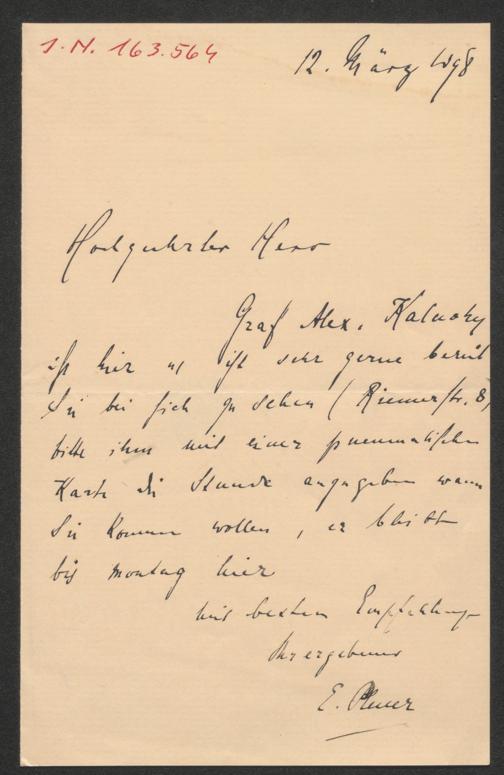 J.N. 163.564
12. März 1898
Hochgeehrter Herr
Graf Alex. Kalnoky
ist hier u ist sehr gerne bereit
Sie bei sich zu sehen (Riemerstr. 8,
bitte ihm mit einer pneumatischen
Karte die Stunde anzugeben wann
Sie kommen wollen, er bleibt
bis Montag hier
Mit besten Empfehlungen
Ihr ergebener
E. Plener